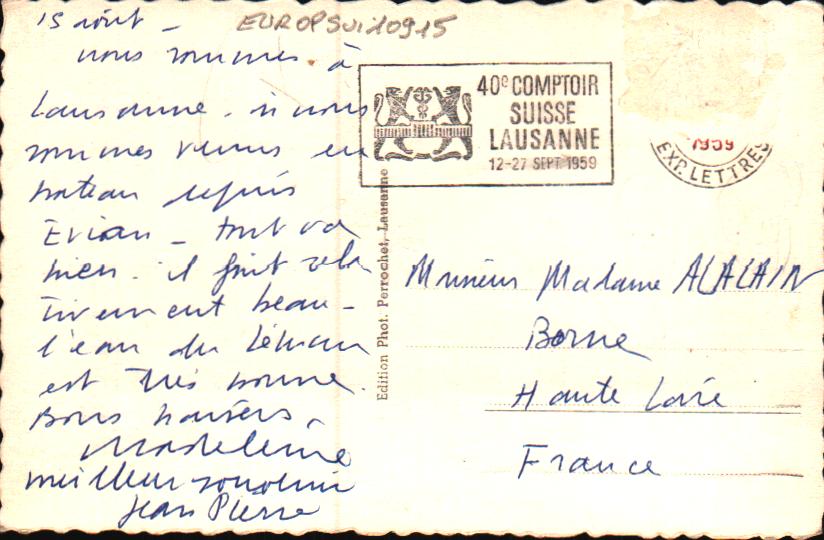 15 août -
nous sommes à
Lausanne. si nous
sommes venus en
bateau depuis
Evian - tout va
bien. il fait rela
tivement beau -
l'eau du Léman
est très bonne.
Bons baisers.
Madeleine
meilleur souvenir
Jean Pierre
EUROPSUI10915
40e COMPTOIR
SUISSE
LAUSANNE
12-27 SEPT. 1959
1959
EXP. LETTRES
Edition Phot. Perrochet, Lausanne
Monsieur Madame ALALAIN
Borne
Haute Loire
France